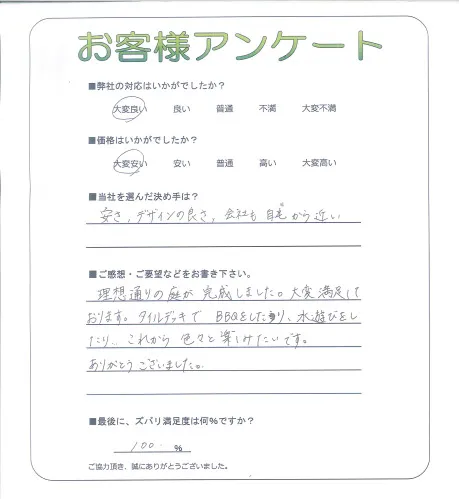 お客様アンケート
■弊社の対応はいかがでしたか？
大変良い 良い 普通 不満 大変不満
■価格はいかがでしたか？
大変安い 安い 普通 高い 大変高い
■当社を選んだ決め手は？
安さ，デザインの良さ，会社も自宅から近い
■ご感想・ご要望などをお書き下さい。
理想通りの庭が完成しました。大変満足して
おります。タイルデッキでBBQをしたり、水遊びをし
たり… これから色々と楽しみたいです。
ありがとうございました。
■最後に、ズバリ満足度は何％ですか？
100 ％
ご協力頂き、誠にありがとうございました。